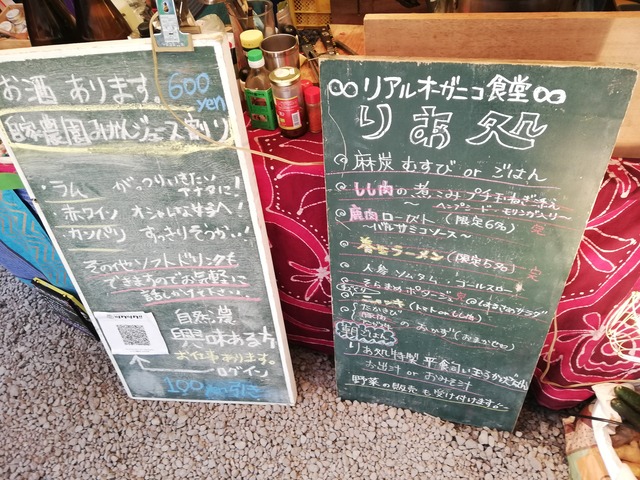 お酒 あります。 600 yen
自家農園みかんジュース割り
・ラム がっつりいきたいアナタに!
・赤ワイン オシャレな女子へ!
・カンパリ すっきりぞっかい!
その他ソフトドリンクも
できますのでお気軽に
話しかけて下さい
自然農
興味ある方
お仕事あります。
ログイン
100
∞リアルオガニコ食堂∞
りあ処
麻炭むすび or ごはん
しし肉の煮こみプチ玉ねぎ添え
鹿肉ロースト (限定6%)
〜バルサミコソース〜
養生ラーメン (限定5%)
人参 ソムタム コールスロー
そらまめポタージュ
ニョッキ
たかきび
のおかず (おまかせ)
朝ごはん
りあ処特製 平飼い玉子かけごはん
お出汁 or おみそ汁
野菜の販売も受け付けます